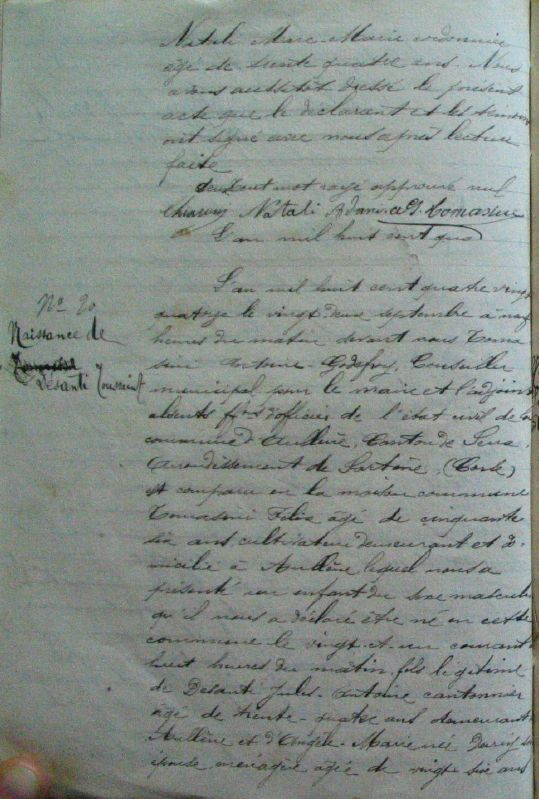 Natali Marc-Marie cordonnier
âgé de trente quatre ans. Nous
avons aussitôt dressé le présent
acte que le déclarant et les témoins
ont signé avec nous après lecture
faite
mot rayé approuvé nul
Natali Adami A. G. Tomasini
L'an mil huit cent qua
L'an mil huit cent quatre vingt
quatorze le vingt deux septembre à neuf
heures du matin devant nous Toma
sini Antoine-Godefroy, Conseiller
municipal pour le maire et l'adjoint
absents fons d'officier de l'état civil de la
commune d'Aullène, Canton de Serra
Arrondissement de Sartène, (Corse)
est comparu en la maison commune
Tomasini Félix âgé de cinquante
six ans, cultivateur demeurant et do-
micilié à Aullène, lequel nous a
présenté un enfant du sexe masculin
qu'il nous a déclaré être né en cette
commune le vingt-et-un courant
huit heures du matin, fils légitime
de Desanti Jules-Antoine cantonnier
âgé de trente-quatre ans demeurant
Aullène et d'Angèle-Marie née
épouse ménagère âgée de vingt six ans
No 20
Naissance de
Desanti Toussaint